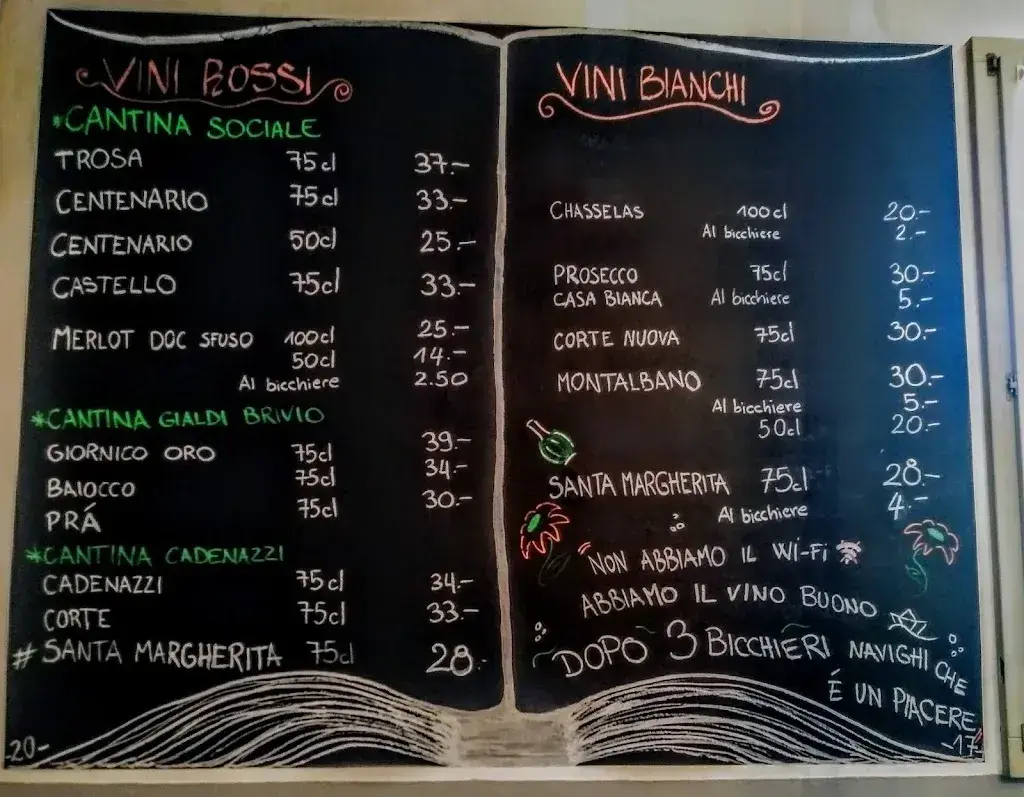 VINI ROSSI
*CANTINA SOCIALE
TROSA 75cl 37.-
CENTENARIO 75cl 33.-
CENTENARIO 50cl 25.-
CASTELLO 75cl 33.-
MERLOT DOC SFUSO 100cl 25.-
50cl 14.-
Al bicchiere 2.50
*CANTINA GIALDI BRIVIO
GIORNICO ORO 75cl 39.-
BAIOCCO 75cl 34.-
PRÁ 75cl 30.-
*CANTINA CADENAZZI
CADENAZZI 75cl 34.-
CORTE 75cl 33.-
# SANTA MARGHERITA 75cl 28.-
-20-
VINI BIANCHI
CHASSELAS 100cl 20.-
Al bicchiere 2.-
PROSECCO 75cl 30.-
CASA BIANCA Al bicchiere 5.-
CORTE NUOVA 75cl 30.-
MONTALBANO 75cl 30.-
Al bicchiere 5.-
50cl 20.-
SANTA MARGHERITA 75cl 28.-
Al bicchiere 4.-
"NON ABBIAMO IL WI-FI
ABBIAMO IL VINO BUONO
DOPO 3 BICCHIERI NAVIGHI CHE
É UN PIACERE
-17-